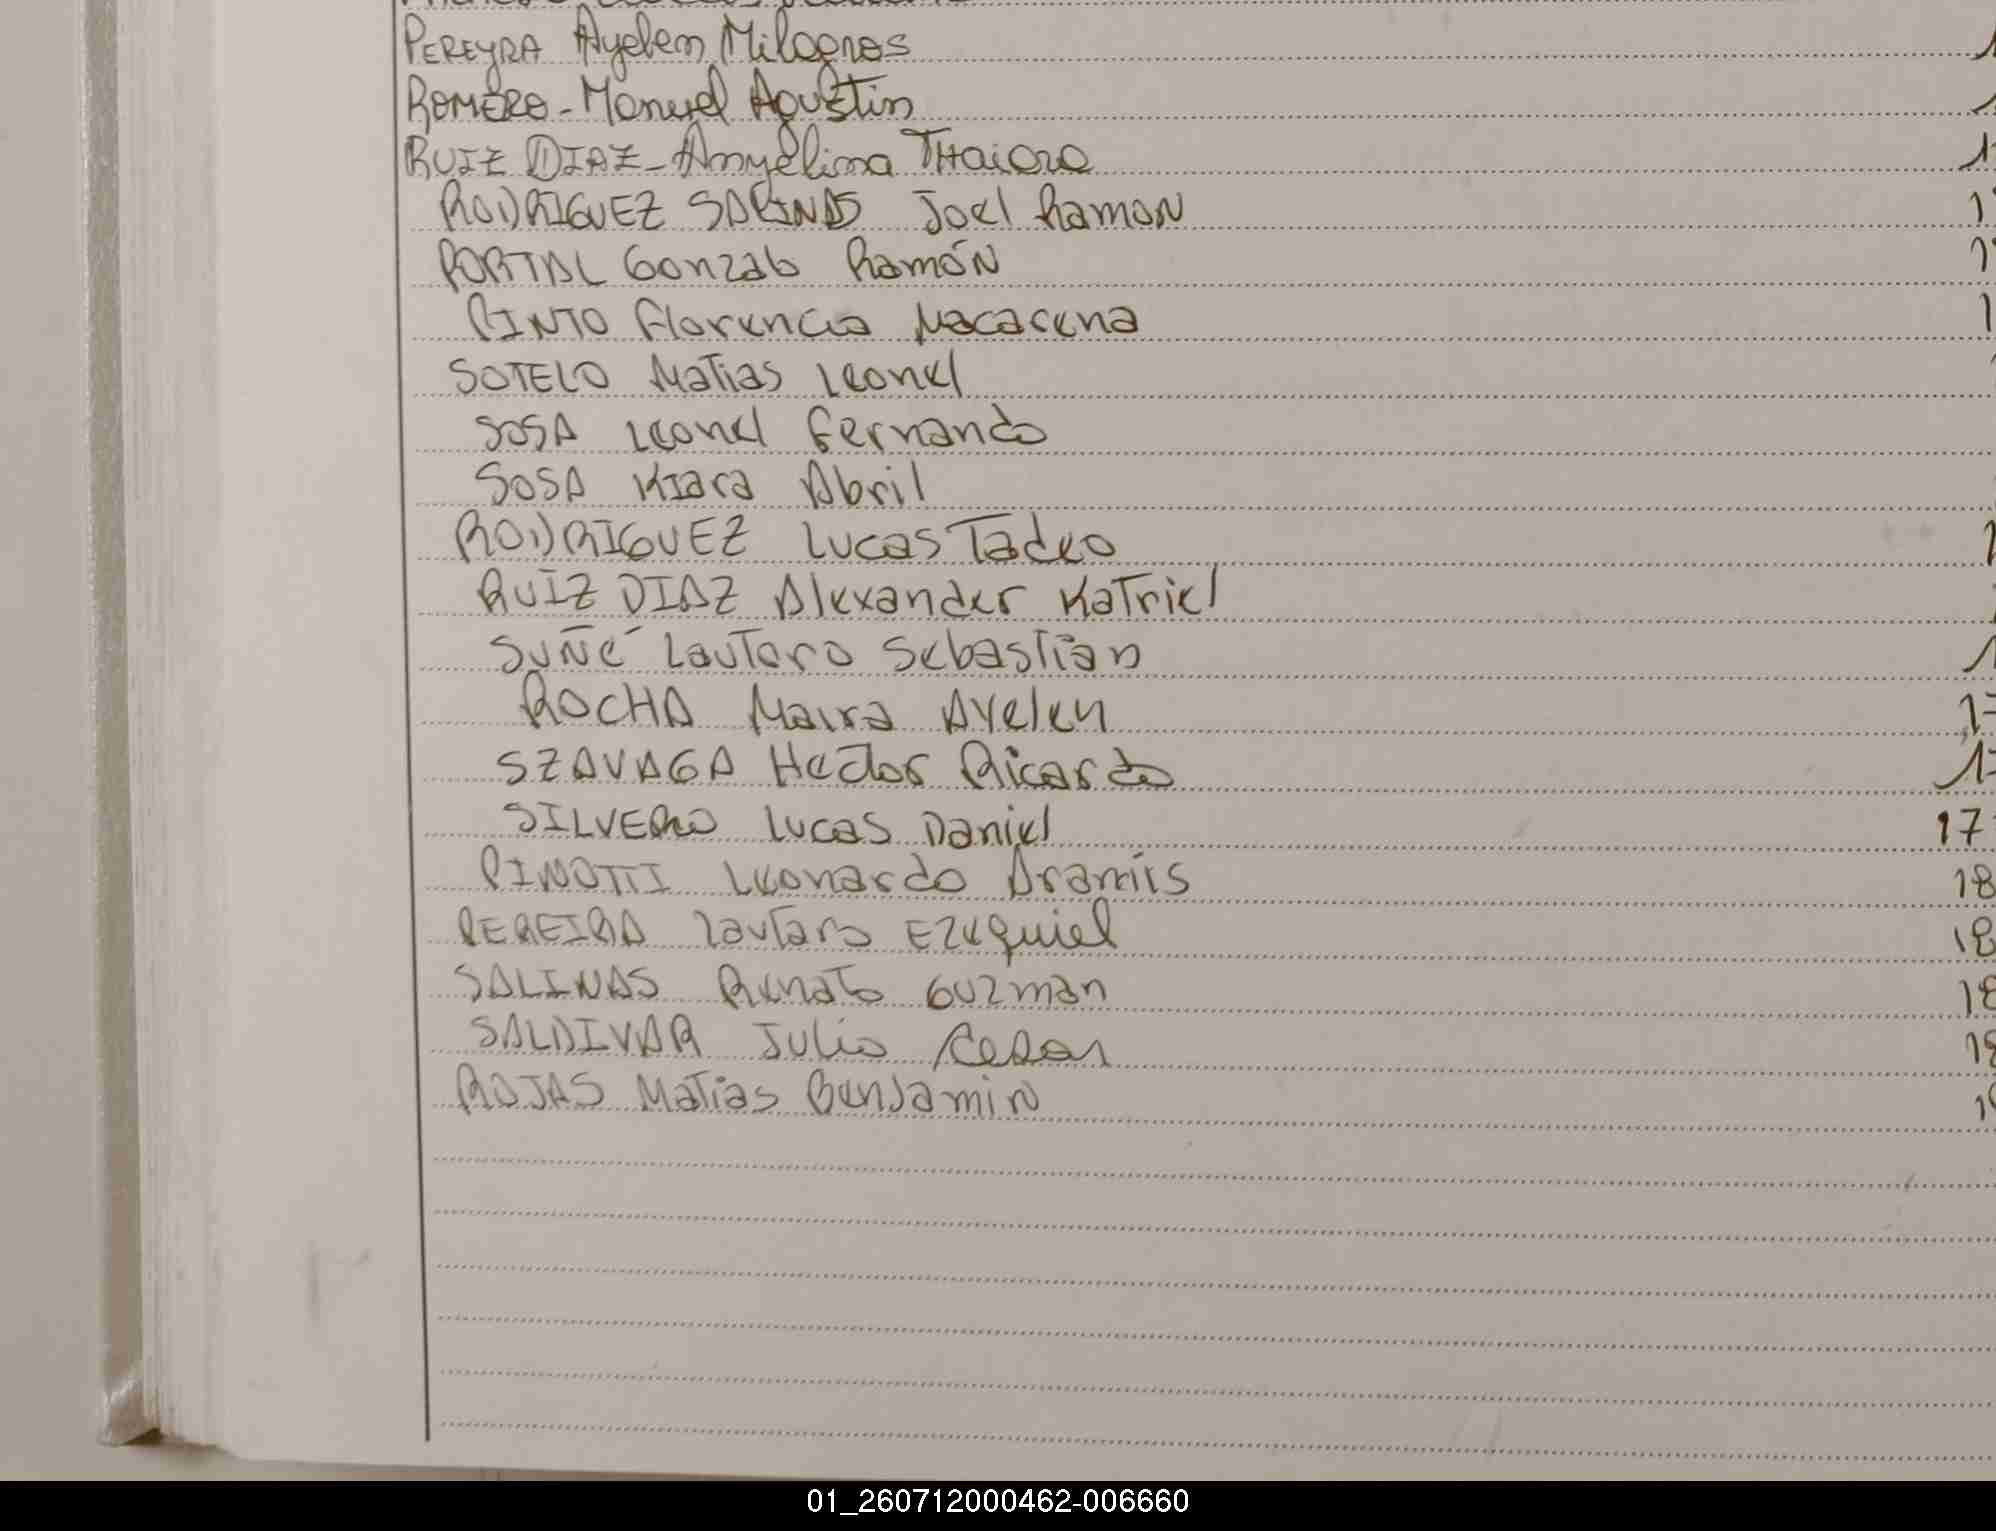 PEREYRA Ayelen Milagros 1
ROMERO - Manuel Agustin 1
RUIZ DIAZ - Angelina THaiara 1
RODRIGUEZ SALINAS Joel Ramon 1
PORTAL Gonzalo Ramón 1
PINTO Florencia Macarena 1
SOTELO Matias Leonel
SOSA Leonel Fernando
SOSA Kiara Abril
RODRIGUEZ Lucas Tadeo 1
RUIZ DIAZ Alexander Katriel
SUÑÉ Lautaro Sebastián 1
ROCHA Maira Ayelen 17
SZAVAGA Hector Ricardo 17
SILVERO Lucas Daniel 17
PINOTTI Leonardo Aramís 18
PEREIRA Lautaro Ezequiel 18
SALINAS Renato Guzman 18
SALDIVAR Julio Cesar 18
ROJAS Matias Benjamin 1
01_260712000462-006660